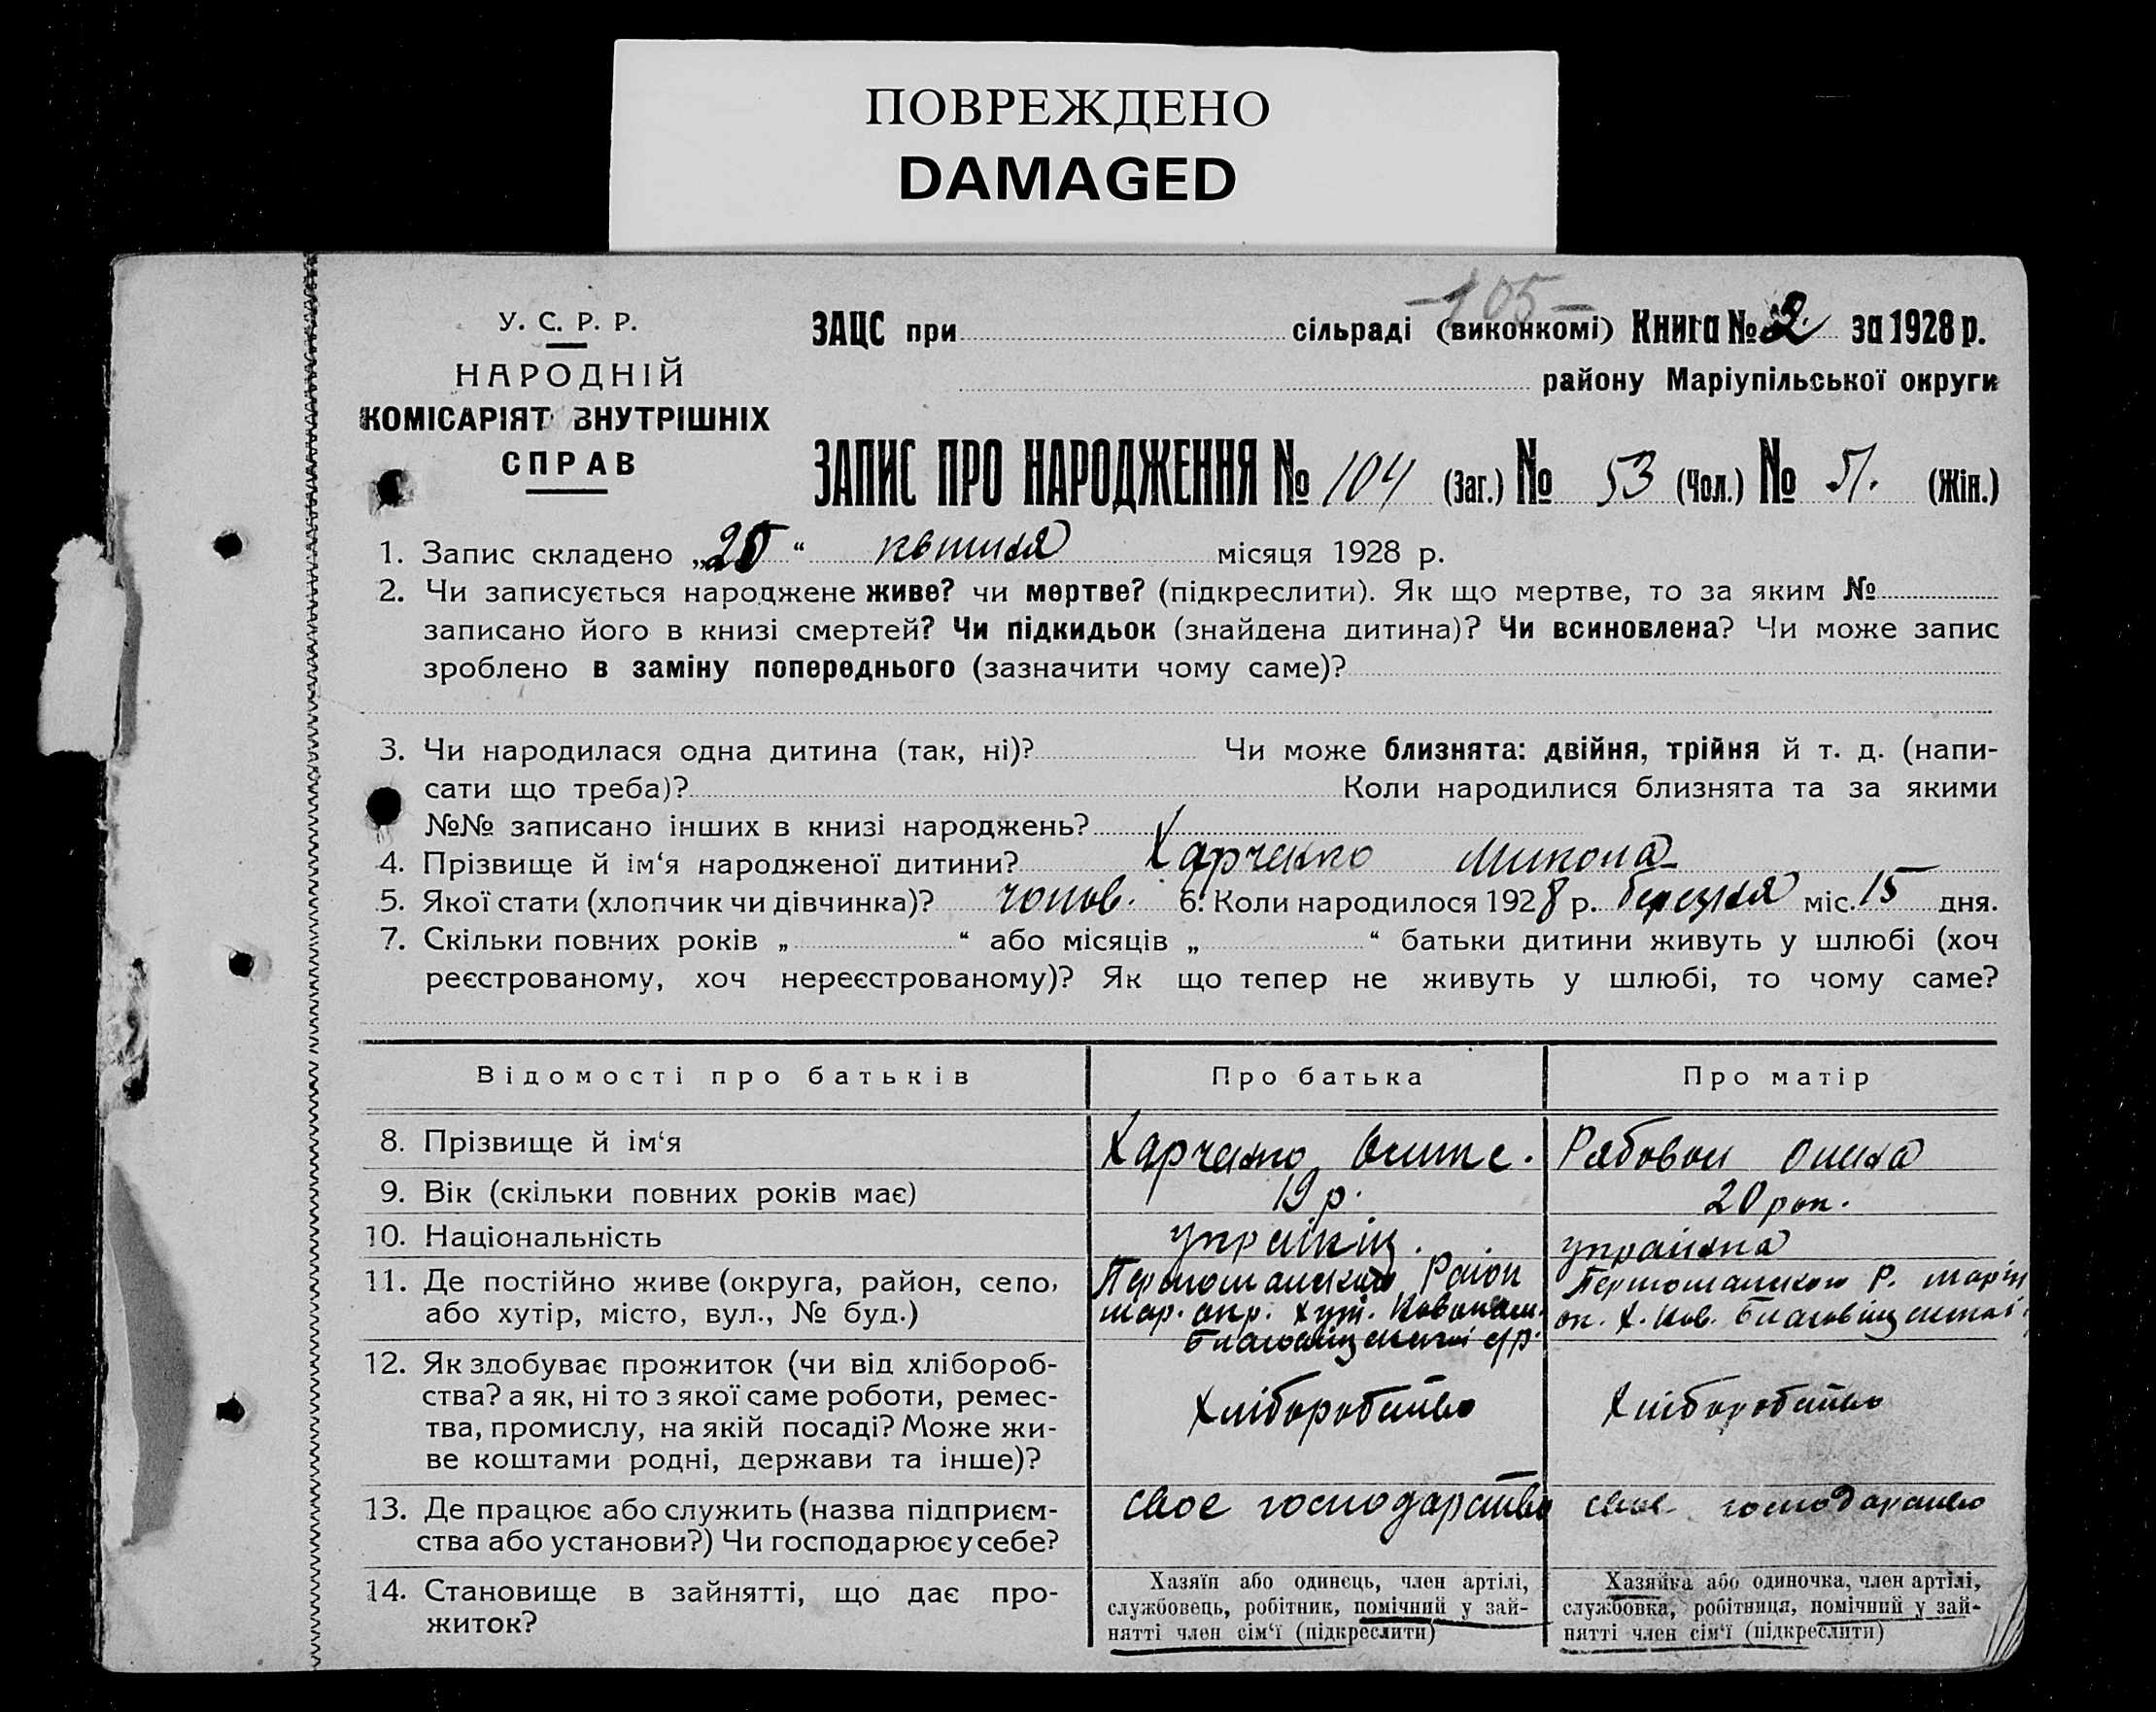 ПОВРЕЖДЕНО
DAMAGED
-105-
У. С. Р. Р.
НАРОДНІЙ
КОМІСАРІЯТ ВНУТРІШНІХ
СПРАВ
ЗАЦС при сільраді (виконкомі) Книга № 2 за 1928 р.
району Маріупільської округи
ЗАПИС ПРО НАРОДЖЕННЯ № 104 (Заг.) № 53 (Чол.) № 51. (Жін.)
1. Запис складено „25“ квітня місяця 1928 р.
2. Чи записується народжене живе? чи мертве? (підкреслити). Як що мертве, то за яким №
записано його в книзі смертей? Чи підкидьок (знайдена дитина)? Чи всиновлена? Чи може запис
зроблено в заміну попереднього (зазначити чому саме)?
3. Чи народилася одна дитина (так, ні)? Чи може близнята: двійня, трійня й т. д. (напи-
сати що треба)? Коли народилися близнята та за якими
№№ записано інших в книзі народжень?
4. Прізвище й ім‘я народженої дитини? Харченко Микола
5. Якої стати (хлопчик чи дівчинка)? чолов. 6. Коли народилося 1928 р. березня міс. 15 дня.
7. Скільки повних років „ “ або місяців „ “ батьки дитини живуть у шлюбі (хоч
реєстрованому, хоч нереєстрованому)? Як що тепер не живуть у шлюбі, то чому саме?
Відомості про батьків Про батька Про матір
8. Прізвище й ім‘я Харченко Рябовол
9. Вік (скільки повних років має) 19 р. 20 рок.
10. Національність українка
11. Де постійно живе (округа, район, село,
або хутір, місто, вул., № буд.)
Район
мар. окр. хут.
12. Як здобуває прожиток (чи від хлібороб-
ства? а як, ні то з якої саме роботи, ремес-
тва, промислу, на якій посаді? Може жи-
ве коштами родні, держави та інше)?
Хліборобство Хліборобство
13. Де працює або служить (назва підприєм-
ства або установи?) Чи господарює у себе?
своє господарство своє господарство
14. Становище в зайнятті, що дає про-
житок?
Хазяїн або одинець, член артілі,
службовець, робітник, помічний у зай-
нятті член сім‘ї (підкреслити)
Хазяйка або одиночка, член артілі,
службовка, робітниця, помічний у зай-
нятті член сім‘ї (підкреслити)